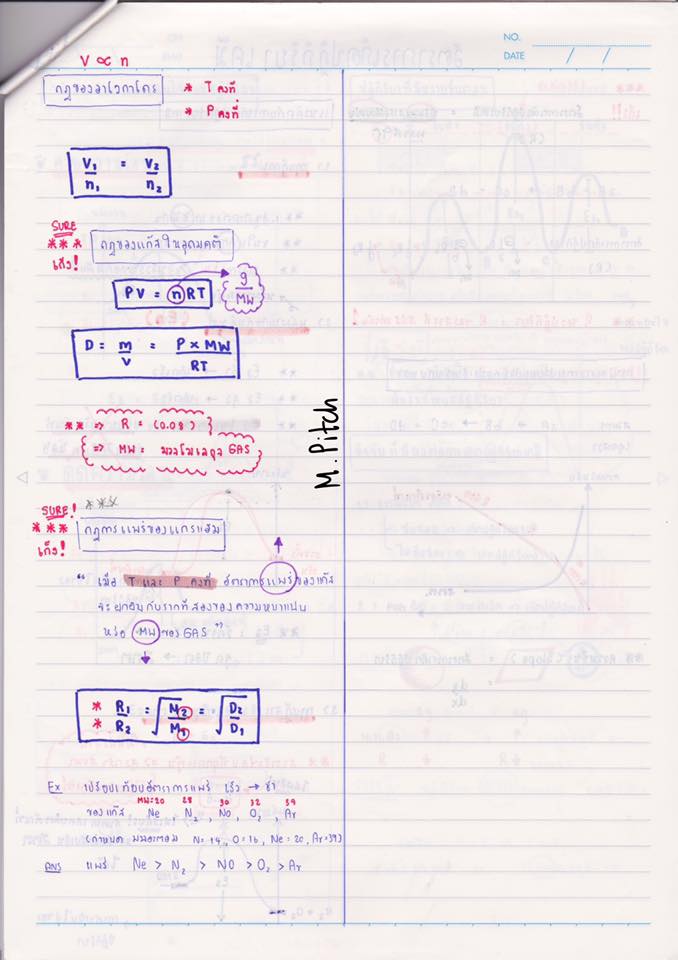 NO.
DATE / /
V ∝ n
กฎของอาโวกาโดร
* T คงที่
* P คงที่
V₁/n₁ = V₂/n₂
SURE
***
เก็ง!
กฎของแก๊สในอุดมคติ
PV = nRT
g/MW
D = m/V = P × MW/RT
** => R = (0.08)
=> MW = มวลโมเลกุล GAS
M.Pitch
SURE! ***
***
เก็ง!
กฎการแพร่ของแกรแฮม
" เมื่อ T และ P คงที่ อัตราการแพร่ของแก๊ส
จะผกผันกับรากที่สองของความหนาแน่น
หรือ MW ของ GAS "
* * R₁/R₂ = √M₂/M₁ = √D₂/D₁
Ex เปรียบเทียบอัตราการแพร่ เร็ว → ช้า
MW=20 28 30 32 39
ของแก๊ส Ne N₂, NO, O₂, Ar
(กำหนด มวลอะตอม N=14, O=16, Ne=20, Ar=39)
ANS แพร่ Ne > N₂ > NO > O₂ > Ar